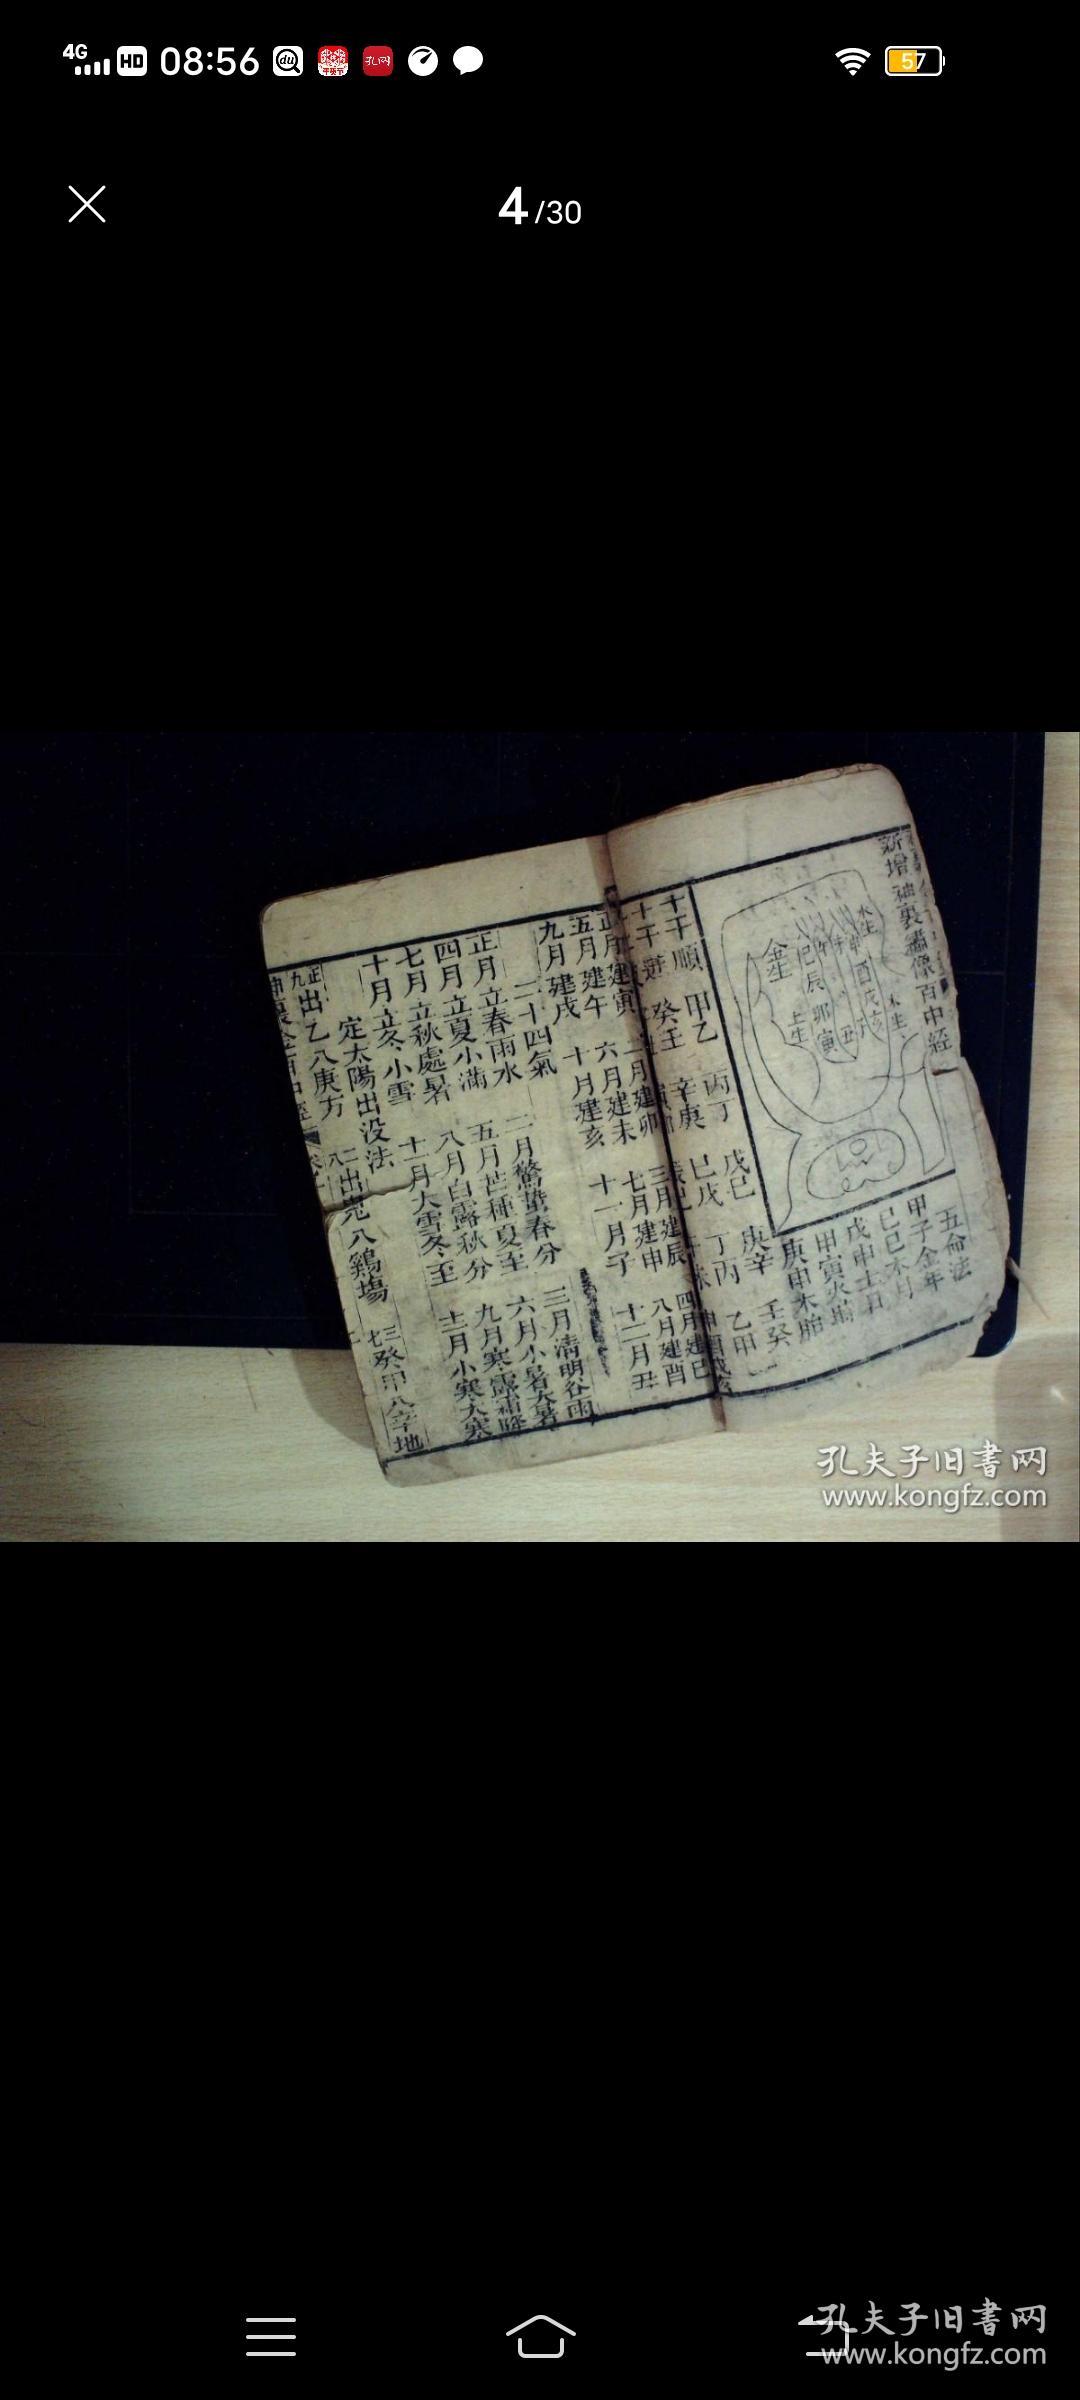 4G HD 08:56 57
4/30
新增神裏繡像百中經
水生
申酉戌亥
木生
金生
巳辰卯寅
丑
土生
五命法
甲子金年
己巳木月
戊申土日
甲寅火
庚申木胎
十干順 甲乙 丙丁 戊己 庚辛 壬癸
十干逆 癸壬 辛庚 己戊 丁丙 乙甲
正月建寅 二月建卯 三月建辰 四月建巳
五月建午 六月建未 七月建申 八月建酉
九月建戌 十月建亥 十一月子 十二月丑
二十四氣
正月立春雨水 二月驚蟄春分 三月清明谷雨
四月立夏小滿 五月芒種夏至 六月小暑大暑
七月立秋處暑 八月白露秋分 九月寒露霜降
十月立冬小雪 十一月大雪冬至 十二月小寒大寒
定太陽出没法
正九出乙入庚方 二八出兎入鷄場 三七癸甲入辛地
孔夫子旧書网
www.kongfz.com
孔夫子旧書网
www.kongfz.com